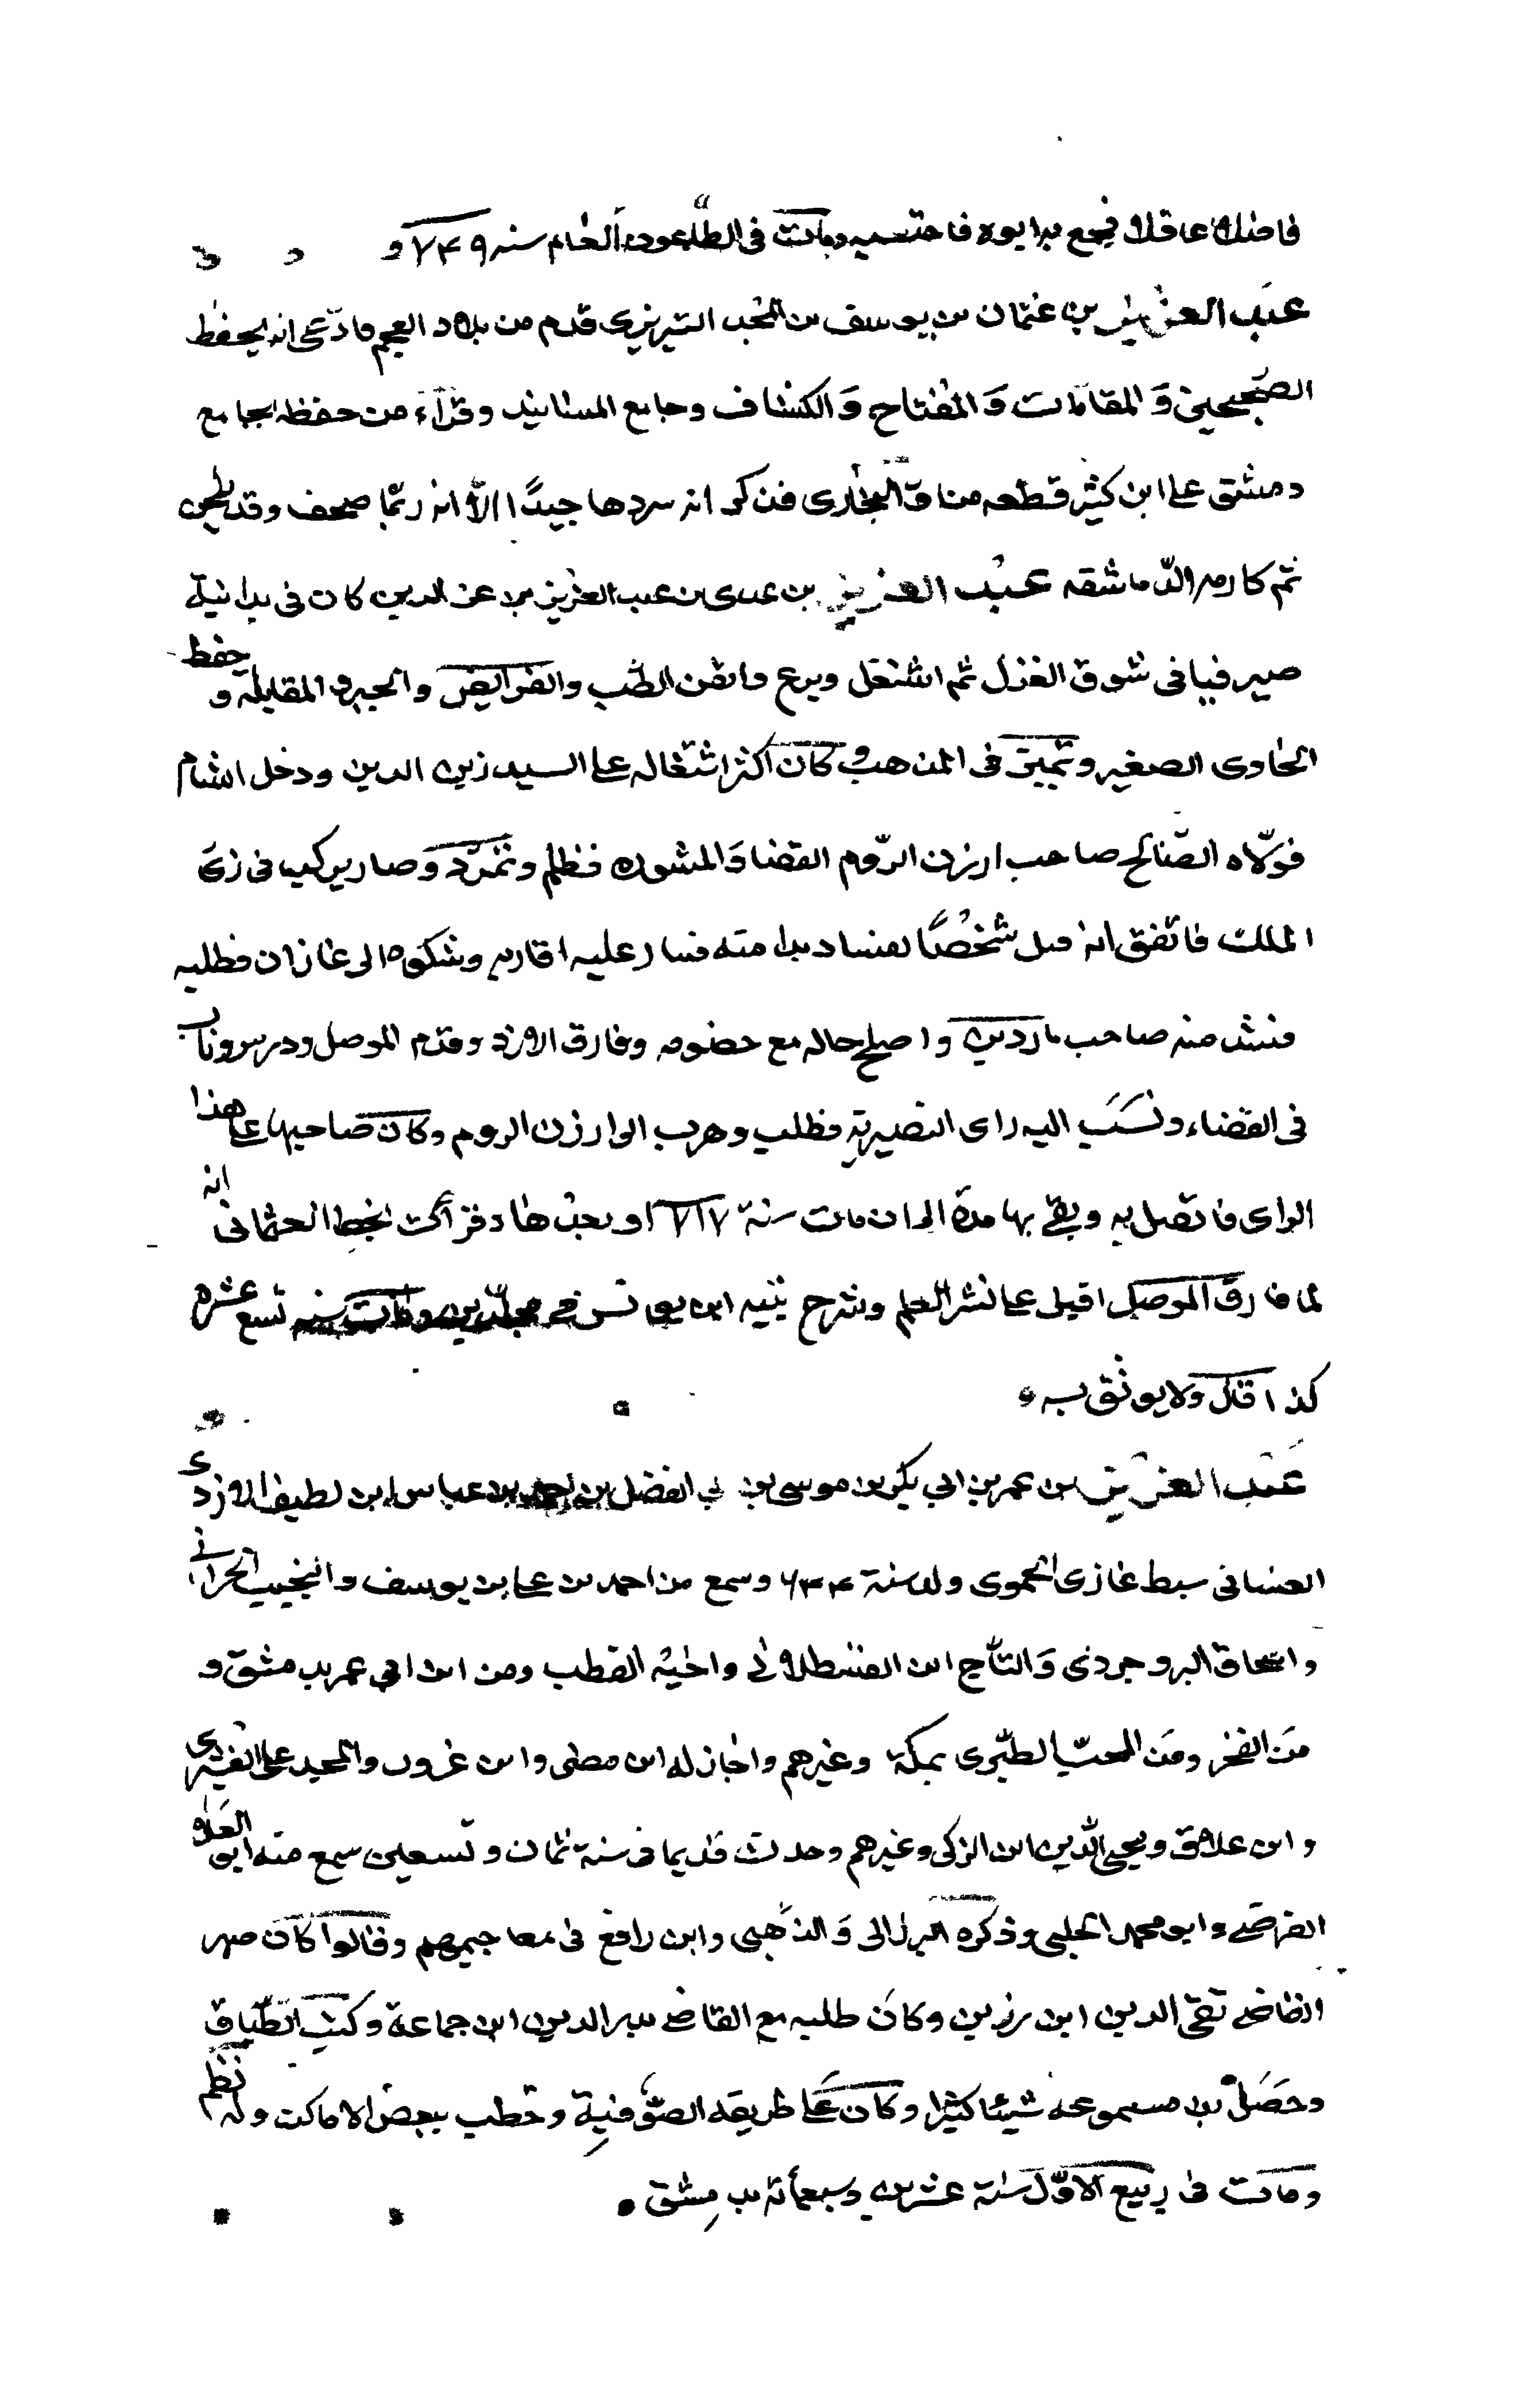 فاضلا عاقلا فجع به ابوه فاحتسبه ومات فى الطاعون العام سنه ٧٤٩
عبد العزيز بن عثمان بن يوسف بن المحب التبريزى قدم من بلاد العجم فادّعى انه يحفظ
الصحيحين وَالمقامات وَالمفتاح وَالكشاف وجامع المسانيد وقرأ من حفظه بجامع
دمشق على ابن كثير قطعه من البخارى فذكر انه سردها جيدًا الاّ انه ربّما صحف وقد لحن
ثم كارمه الدماشقه عبد العزيز بن عدى بن عبد العزيز عز الدين كان فى بدايته
صيرفيا فى سوق الغزل ثم اشتغل وبرع واتقن الطب والفرايض والجبر والمقابلة و حفظ
الحاوى الصغير وتميز فى المذهب وكان اكثر اشتغاله على السيد زين الدين ودخل الشام
فولاّه الصّالح صاحب ارزن الرّوم القضا وَالمشوره فظلم وتمرّد وصار يركب فى زىّ
الملك فاتفق انه قتل شخصًا لفساد بدا منه فسار عليه اقاربه وشكوه الى غازان فطلبه
منه صاحب ماردين واصلح حاله مع خصومه وفارق الارزن وقدم الموصل ودرس وناب
فى القضاء ونسَبَ اليه راى النصيريّة فطلب وهرب الى ارزن الروم وكان صاحبها على هذا
الراى فاتصل به وبقى بها مدة الى ان مات سنة ٧١٧ او بعدها وقرأت بخط العثمانى انه
لما فارق الموصل اقبل على نشر العلم وشرح تنبيه ابن يونس فى مجلّدين ومات سنه تسع عشره
كذا قال ولا يوثق به
عبد العزيز بن عمر بن ابي بكر بن موسى بن ابي الفضل بن احمد بن عباس ابن لطيف الازدى
الغسانى سبط غازى الحموى ولد سنة ٦٤٤ وسمع من احمد بن على بن يوسف والنجيب الحرانى
واسحاق البروجردى وَالتاج ابن القسطلانى واخيه القطب ومن ابن ابي عمر بدمشق و
من الفخر ومن المحبّ الطبرى بمكة وغيرهم واجاز له ابن مضى وابن عزون والمجد على
وابن علاق ويحيى الدين ابن الزكى وغيرهم وحدث قديما فى سنة ثمان وتسعين سمع منه ابو العلاء
الفرضى وابو محمد الحلبى وذكره البرزالى وَالذهبى وابن رافع فى معاجيمهم وقالوا كان صهر
القاضى تقى الدين ابن رزين وكان طلبه مع القاضى بدر الدين ابن جماعة وكتب الطباق
وحصّل من مسموعه شيئا كثيرا وكان على طريقه الصّوفية وخطب ببعض الاماكن وله نظم
ومات فى ربيع الاوّل سنة عشرين وسبعمأئة بدمشق